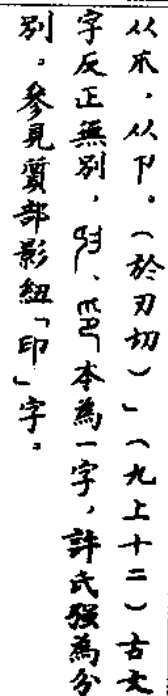 从爪,从卩。(於刃切)」(九上十二)古文
字反正無別,、本為一字,許氏強為分
別。參見質部影紐「印」字。